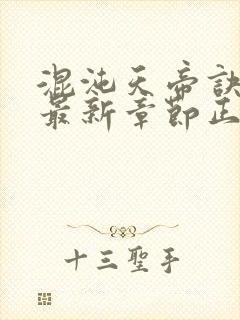 混沌天帝訣
最新章節正
十三聖手